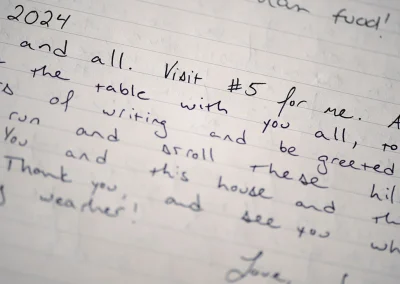 fuad!
2024
and all. Visit #5 for me. A
the table with you all, to
of writing and be greeted
run and stroll these hil
You and this house and th
Thank you, and see you wh
weather!
Love,